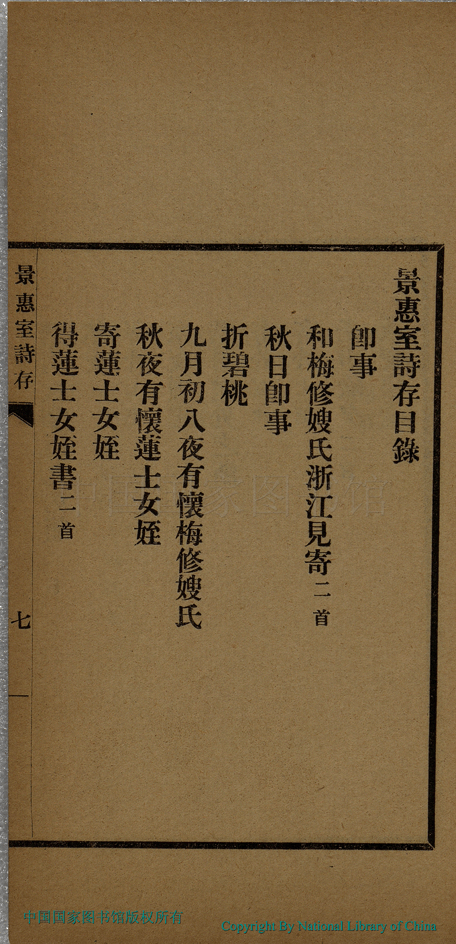 景惠室詩存目錄
卽事
和梅修嫂氏浙江見寄二首
秋日卽事
折碧桃
九月初八夜有懷梅修嫂氏
秋夜有懷蓮士女姪
寄蓮士女姪
得蓮士女姪書二首
景惠室詩存
七
中国国家图书馆
中国国家图书馆版权所有
Copyright By National Library of China